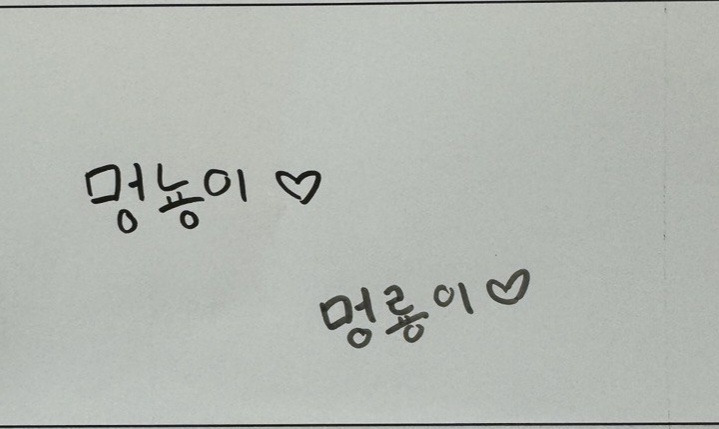 멍뇽이 ♡
멍룡이 ♡